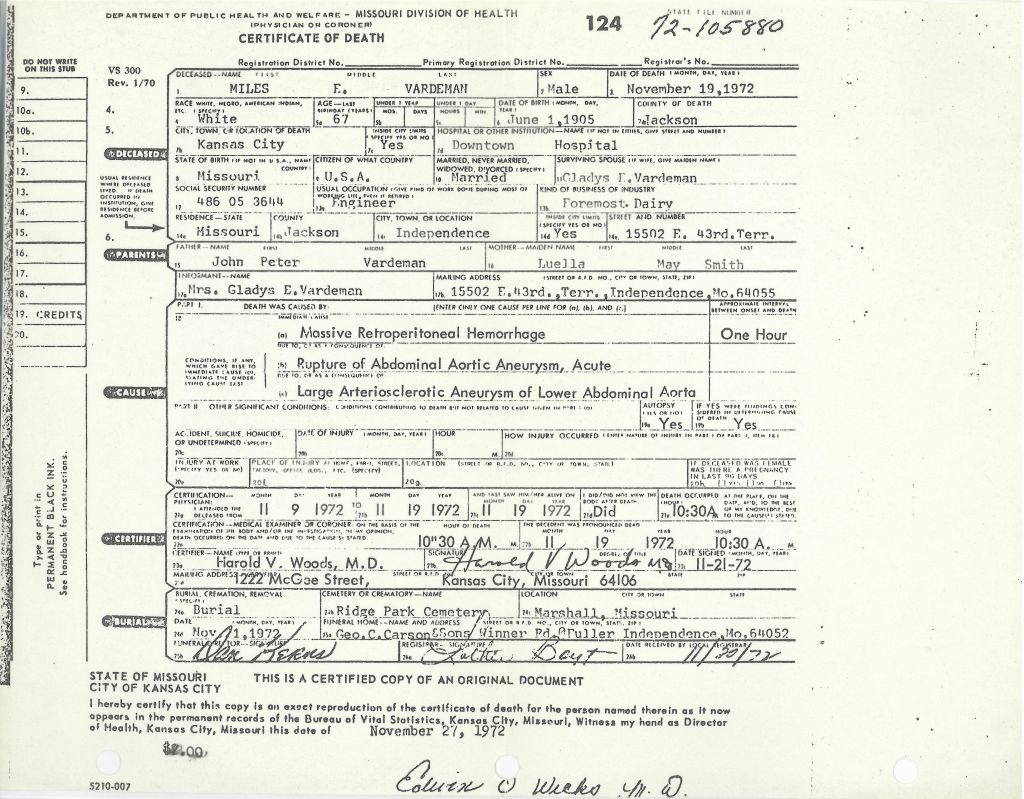 DEPARTMENT OF PUBLIC HEALTH AND WELFARE – MISSOURI DIVISION OF HEALTH
(PHYSICIAN OR CORONER)
CERTIFICATE OF DEATH
124
STATE FILE NUMBER
72-105880
Registration District No. Primary Registration District No. Registrar's No.
DO NOT WRITE ON THIS STUB
VS 300
Rev. 1/70
DECEASED--NAME FIRST MIDDLE LAST SEX DATE OF DEATH (MONTH, DAY, YEAR)
1. MILES E. VARDEMAN 2 Male 3 November 19,1972
RACE WHITE, NEGRO, AMERICAN INDIAN, ETC. (SPECIFY) AGE—LAST BIRTHDAY (YEARS) UNDER 1 YEAR MOS. DAYS UNDER 1 DAY HOURS MIN. DATE OF BIRTH (MONTH, DAY, YEAR) COUNTY OF DEATH
4 White 5a 67 5b 5c 6 June 1,1905 7a Jackson
CITY, TOWN, OR LOCATION OF DEATH INSIDE CITY LIMITS (SPECIFY YES OR NO) HOSPITAL OR OTHER INSTITUTION—NAME (IF NOT IN EITHER, GIVE STREET AND NUMBER)
7b Kansas City 7c Yes 7d Downtown Hospital
STATE OF BIRTH (IF NOT IN U.S.A., NAME COUNTRY) CITIZEN OF WHAT COUNTRY MARRIED, NEVER MARRIED, WIDOWED, DIVORCED (SPECIFY) SURVIVING SPOUSE (IF WIFE, GIVE MAIDEN NAME)
8 Missouri 9 U.S.A. 10 Married 11 Gladys E.Vardeman
SOCIAL SECURITY NUMBER USUAL OCCUPATION (GIVE KIND OF WORK DONE DURING MOST OF WORKING LIFE, EVEN IF RETIRED) KIND OF BUSINESS OF INDUSTRY
12 486 05 3644 13a Engineer 13b Foremost Dairy
RESIDENCE—STATE COUNTY CITY, TOWN, OR LOCATION INSIDE CITY LIMITS (SPECIFY YES OR NO) STREET AND NUMBER
14a Missouri 14b Jackson 14c Independence 14d Yes 14e 15502 E. 43rd.Terr.
FATHER—NAME FIRST MIDDLE LAST MOTHER—MAIDEN NAME FIRST MIDDLE LAST
15 John Peter Vardeman 16 Luella May Smith
INFORMANT—NAME MAILING ADDRESS (STREET OR R.F.D. NO., CITY OR TOWN, STATE, ZIP)
17a Mrs. Gladys E.Vardeman 17b 15502 E.43rd.,Terr.,Independence,Mo.64055
PART I. DEATH WAS CAUSED BY: [ENTER ONLY ONE CAUSE PER LINE FOR (a), (b), AND (c)] APPROXIMATE INTERVAL BETWEEN ONSET AND DEATH
18 IMMEDIATE CAUSE
(a) Massive Retroperitoneal Hemorrhage One Hour
DUE TO, OR AS A CONSEQUENCE OF:
(b) Rupture of Abdominal Aortic Aneurysm, Acute
DUE TO, OR AS A CONSEQUENCE OF
(c) Large Arteriosclerotic Aneurysm of Lower Abdominal Aorta
CONDITIONS, IF ANY, WHICH GAVE RISE TO IMMEDIATE CAUSE (a), STATING THE UNDERLYING CAUSE LAST
PART II OTHER SIGNIFICANT CONDITIONS: CONDITIONS CONTRIBUTING TO DEATH BUT NOT RELATED TO CAUSE GIVEN IN PART I (a) AUTOPSY (YES OR NO) IF YES WERE FINDINGS CONSIDERED IN DETERMINING CAUSE OF DEATH
19a Yes 19b Yes
ACCIDENT, SUICIDE, HOMICIDE, OR UNDETERMINED (SPECIFY) DATE OF INJURY (MONTH, DAY, YEAR) HOUR HOW INJURY OCCURRED (ENTER NATURE OF INJURY IN PART I OR PART II, ITEM 18)
20a 20b 20c M. 20d
INJURY AT WORK (SPECIFY YES OR NO) PLACE OF INJURY AT HOME, FARM, STREET, FACTORY, OFFICE BLDG., ETC. (SPECIFY) LOCATION (STREET OR R.F.D. NO., CITY OR TOWN, STATE) IF DECEASED WAS FEMALE WAS THERE A PREGNANCY IN LAST 90 DAYS
20e 20f 20g 20h
CERTIFICATION—PHYSICIAN: I ATTENDED THE DECEASED FROM MONTH DAY YEAR TO MONTH DAY YEAR AND LAST SAW HIM/HER ALIVE ON MONTH DAY YEAR I DID/DID NOT VIEW THE BODY AFTER DEATH. DEATH OCCURRED (HOUR) AT THE PLACE, ON THE DATE, AND, TO THE BEST OF MY KNOWLEDGE, DUE TO THE CAUSE(S) STATED.
21a 11 9 1972 21b 11 19 1972 21c 11 19 1972 21d Did 21e 10:30A
CERTIFICATION—MEDICAL EXAMINER OR CORONER: ON THE BASIS OF THE EXAMINATION OF THE BODY AND/OR THE INVESTIGATION, IN MY OPINION, DEATH OCCURRED ON THE DATE AND DUE TO THE CAUSE(S) STATED. HOUR OF DEATH THE DECEDENT WAS PRONOUNCED DEAD MONTH DAY YEAR HOUR
22a 10"30 A.M. 22b 11 19 1972 10:30 A. M
CERTIFIER—NAME (TYPE OR PRINT) SIGNATURE DEGREE OR TITLE DATE SIGNED (MONTH, DAY, YEAR)
23a Harold V. Woods, M.D. 23b Harold V Woods MD 23c 11-21-72
MAILING ADDRESS STREET OR R.F.D. CITY OR TOWN STATE ZIP
23d 1222 McGee Street, Kansas City, Missouri 64106
BURIAL, CREMATION, REMOVAL (SPECIFY) CEMETERY OR CREMATORY—NAME LOCATION CITY OR TOWN STATE
24a Burial 24b Ridge Park Cemetery 24c Marshall, Missouri
DATE (MONTH, DAY, YEAR) FUNERAL HOME—NAME AND ADDRESS (STREET OR R.F.D. NO., CITY OR TOWN, STATE, ZIP)
24d Nov 1,1972 25a Geo.C.Carson&Sons Winner Rd.@Fuller Independence,Mo,64052
FUNERAL DIRECTOR—SIGNATURE REGISTRAR—SIGNATURE DATE RECEIVED BY LOCAL REGISTRAR
25b 26a 26b 11/20/72
9.
10a.
10b.
11.
12.
13.
14.
15.
16.
17.
18.
19. CREDITS
20.
4.
5.
6.
DECEASED
USUAL RESIDENCE WHERE DECEASED LIVED. IF DEATH OCCURRED IN INSTITUTION, GIVE RESIDENCE BEFORE ADMISSION.
PARENTS
CAUSE
CERTIFIER
BURIAL
Type or print in
PERMANENT BLACK INK.
See handbook for instructions.
STATE OF MISSOURI
CITY OF KANSAS CITY
THIS IS A CERTIFIED COPY OF AN ORIGINAL DOCUMENT
I hereby certify that this copy is an exect reproduction of the certificate of death for the person named therein as it now
appears in the permanent records of the Bureau of Vital Statistics, Kansas City, Missouri, Witness my hand as Director
of Health, Kansas City, Missouri this date of November 27, 1972
$2.00
5210-007
Edwin O Wicks M.D.